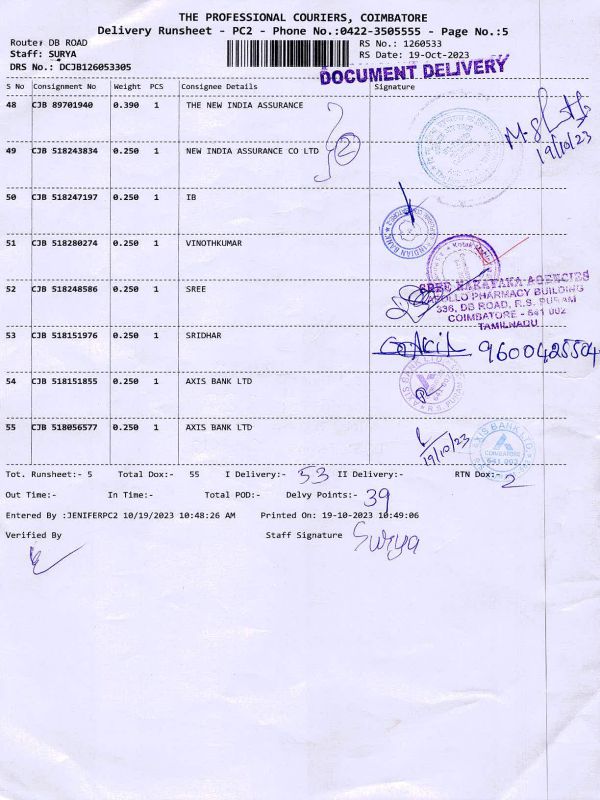 THE PROFESSIONAL COURIERS, COIMBATORE
Delivery Runsheet - PC2 - Phone No.:0422-3505555 - Page No.:5
Route: DB ROAD RS No.: 1260533
Staff: SURYA RS Date: 19-Oct-2023
DRS No.: DCJB126053305
DOCUMENT DELIVERY
S No Consignment No Weight PCS Consignee Details Signature
48 CJB 89701940 0.390 1 THE NEW INDIA ASSURANCE
19/10/23
49 CJB 518243834 0.250 1 NEW INDIA ASSURANCE CO LTD 2
50 CJB 518247197 0.250 1 IB
INDIAN BANK
51 CJB 518280274 0.250 1 VINOTHKUMAR
Kotak
52 CJB 518248586 0.250 1 SREE
SREE NAYAKA AGENCIES
APOLLO PHARMACY BUILDING
336, DB ROAD, R.S. PURAM
COIMBATORE - 641 002
TAMILNADU
53 CJB 518151976 0.250 1 SRIDHAR
9600425504
54 CJB 518151855 0.250 1 AXIS BANK LTD
AXIS BANK LTD
R.S. PURAM
55 CJB 518056577 0.250 1 AXIS BANK LTD
19/10/23
AXIS BANK LTD
COIMBATORE
641 002
Tot. Runsheet:- 5 Total Dox:- 55 I Delivery:- 53 II Delivery:- RTN Dox:- 2
Out Time:- In Time:- Total POD:- Delvy Points:- 39
Entered By :JENIFERPC2 10/19/2023 10:48:26 AM Printed On: 19-10-2023 10:49:06
Verified By Staff Signature Surya